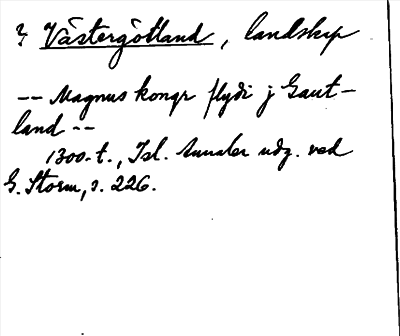 ? Västergötland, landskap
-- Magnus kongr flydi j Gaut-
land --
1300-t., Isl. Annaler udg. ved
G. Storm, s. 226.